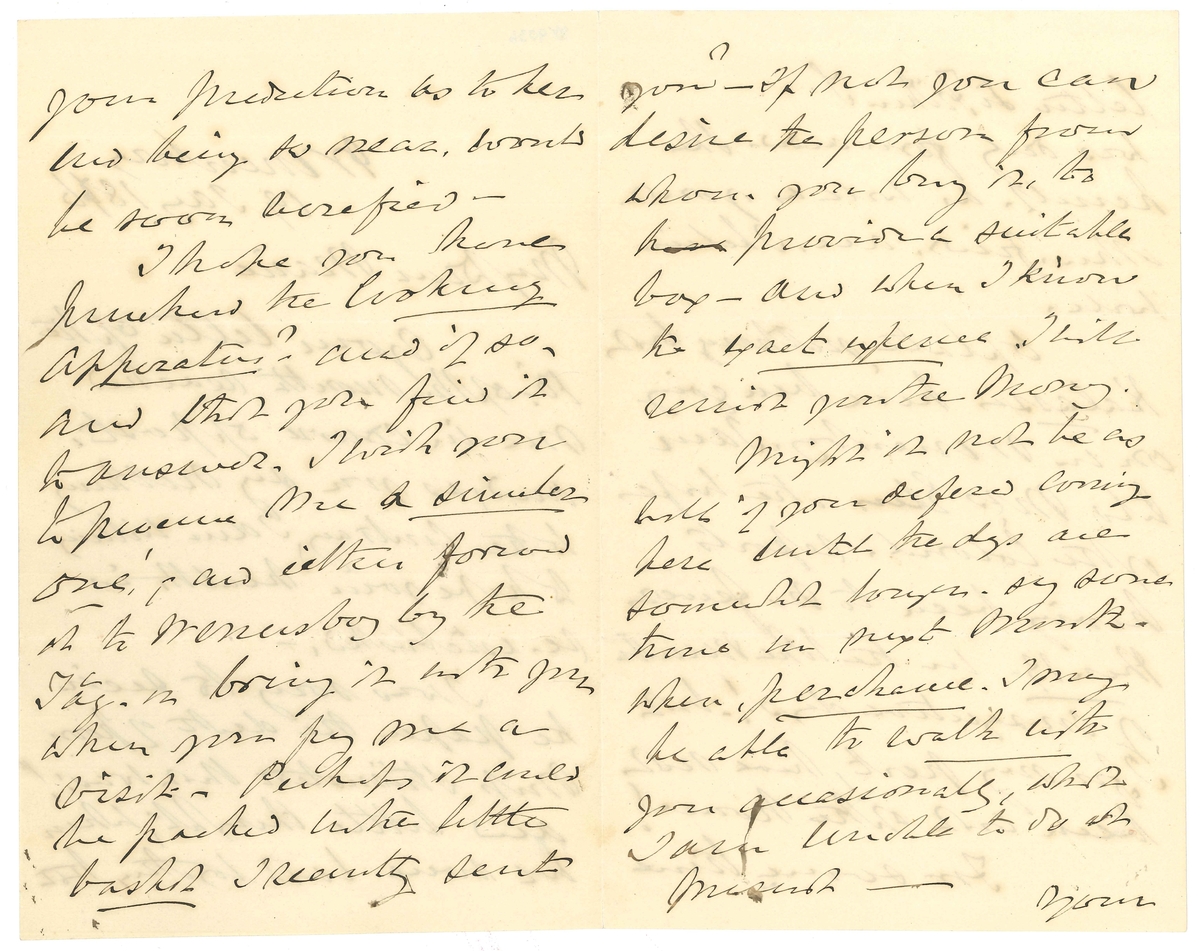 your prediction as to her
end being so near, would
be soon verefied -
I hope you have
purchasd the Cooking
Apparatus? and if so,
and that you find it
to answer. I wish you
to procure me a similar
one, and either forward
it to Wenersborg by the
Tåg. or bring it with you
when you pay me a
visit - Perhaps it could
be packed in the little
basket I recently sent
you? - If not you can
desire the person from
whom you buy it, to
have provide a suitable
box - and when I know
the exact expence I will
remit you the money.
Might it not be as
well if you defered coming
here until the days are
somewhat longer - say some
time in next Month -
when, perchance. I may
be able to walk with
you occasionally, which
I am unable to do at
present —
your